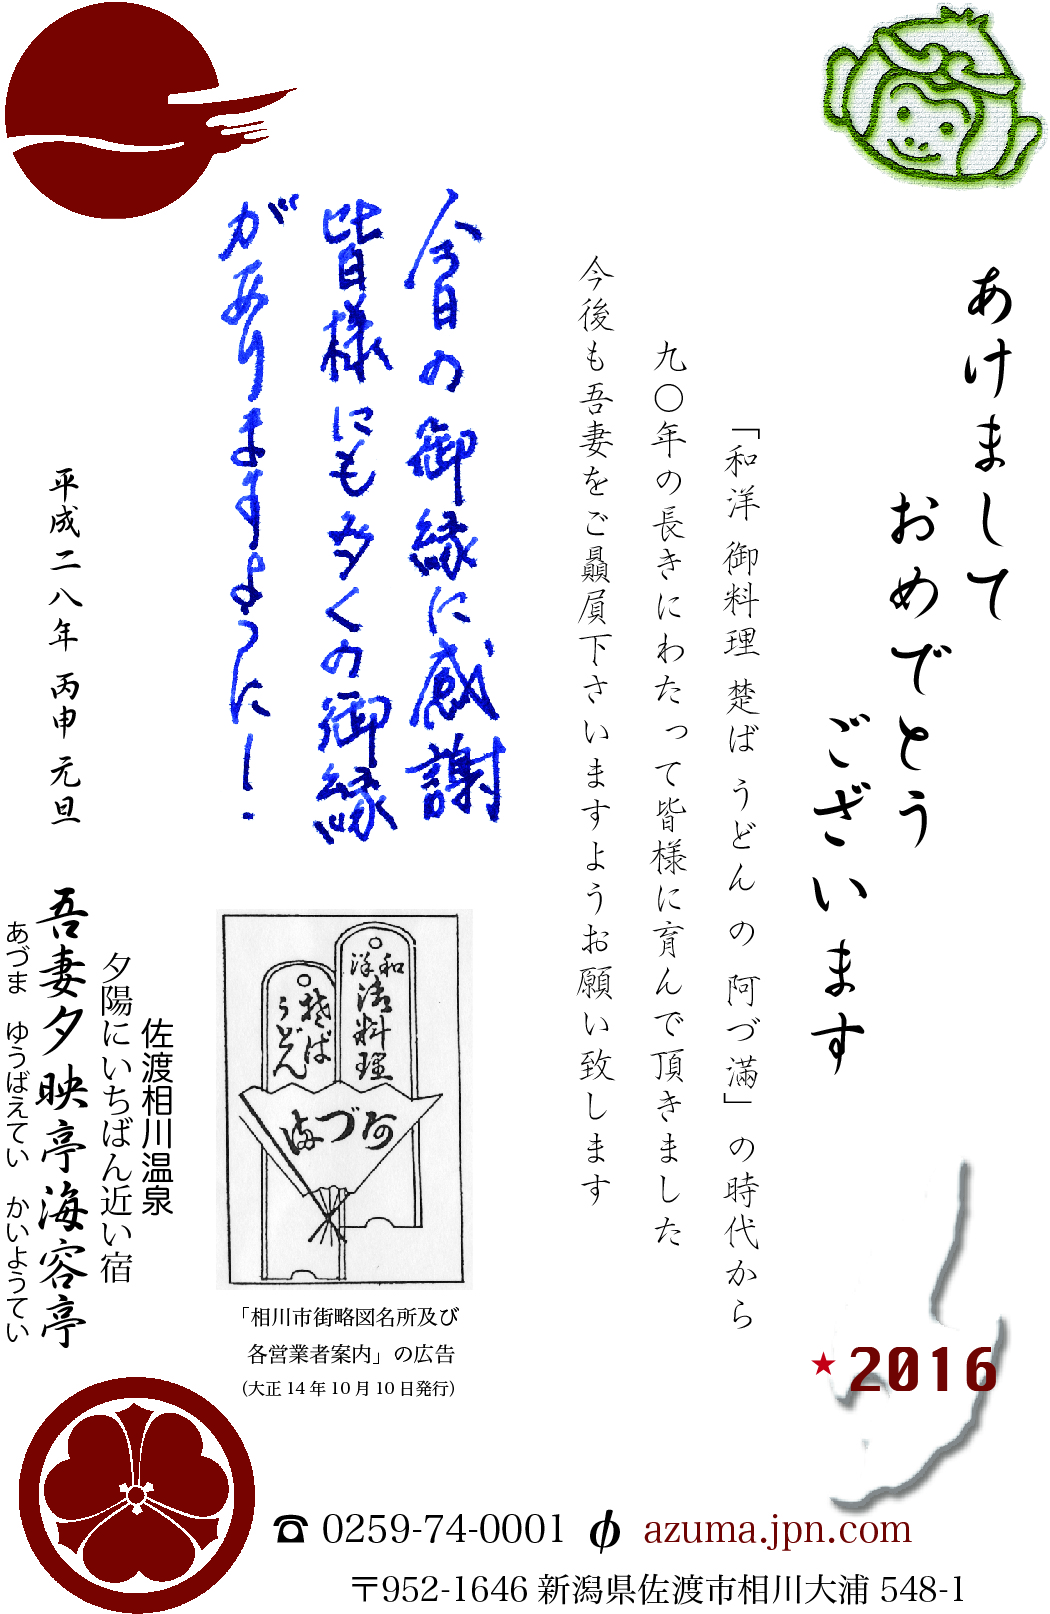 あけまして
おめでとう
ございます
「和洋 御料理 楚ば うどん の 阿づ滿」 の時代から
九〇年の長きにわたって皆様に育んで頂きました
今後も吾妻をご贔屓下さいますようお願い致します
今日の御縁に感謝
皆様にも多くの御縁
がありますように!
平成二八年 丙申 元旦
和洋
御料理
楚ば
うどん
阿づま
「相川市街略図名所及び
各営業者案内」の広告
(大正14年10月10日発行)
佐渡相川温泉
夕陽にいちばん近い宿
吾妻夕映亭海容亭
あづま ゆうばえてい かいようてい
★2016
☎ 0259-74-0001 azuma.jpn.com
〒952-1646 新潟県佐渡市相川大浦 548-1